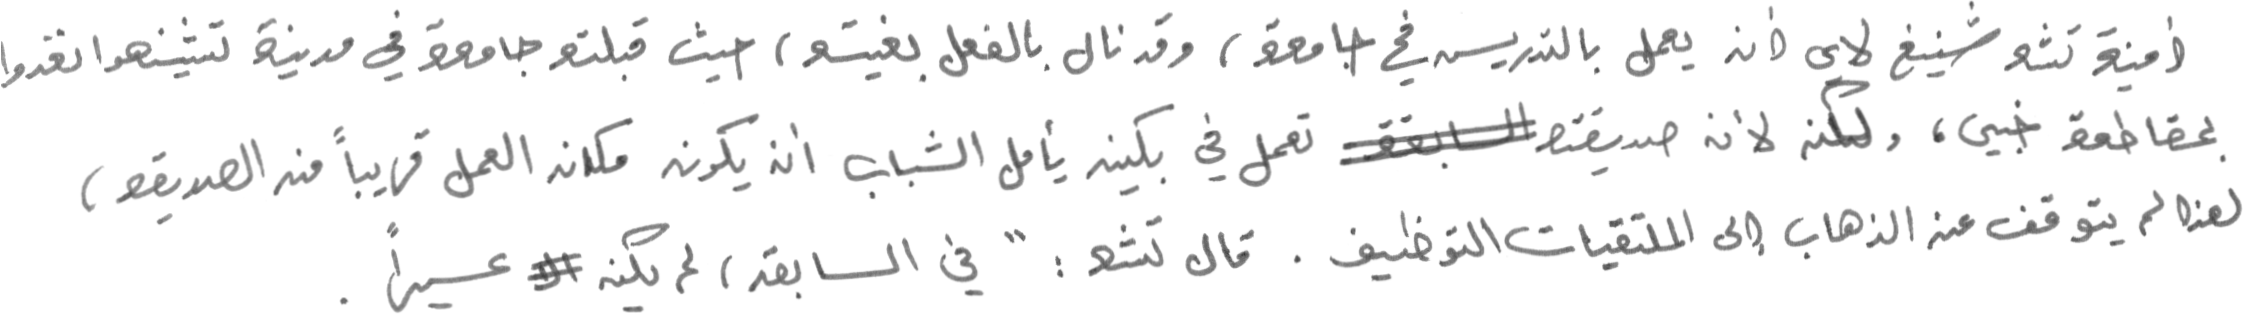 أمنية تشو شينغ لاى أن يعمل بالتدريس في جامعة، وقد نال بالفعل بغيته، حيث قبلته جامعة في مدينة تشينهوانغدوا
بمقاطعة خبي، ولكن لأن صديقته تعمل في بكين يأمل الشباب أن يكون مكان العمل قريباً من الصديقة،
لهذا لم يتوقف عن الذهاب إلى الملتقيات التوظيف. قال تشو: " في السابقة، لم يكن عسيراً.